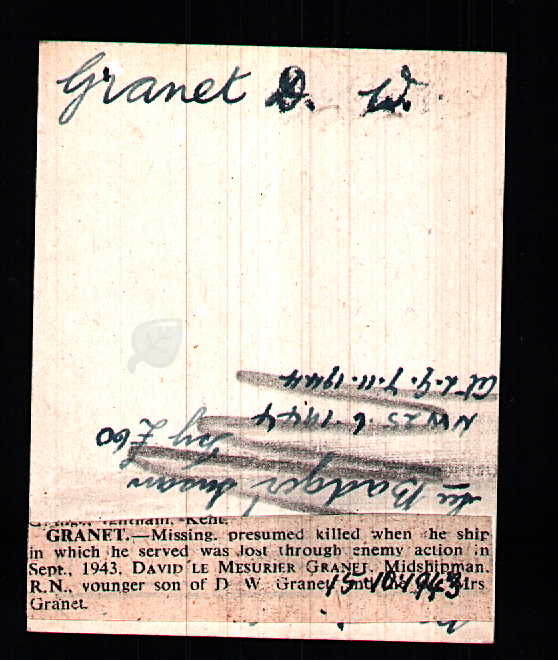 Granet D. W.
Cat 2.G. 7.11.1944
N W 25.6.1944
Ivy £60
Badger Susan
Kent.
GRANET.—Missing, presumed killed when the ship
in which he served was lost through enemy action in
Sept., 1943, DAVID LE MESURIER GRANET, Midshipman,
R.N., younger son of D. W. Granet and the Mrs
Granet.
15.10.1943